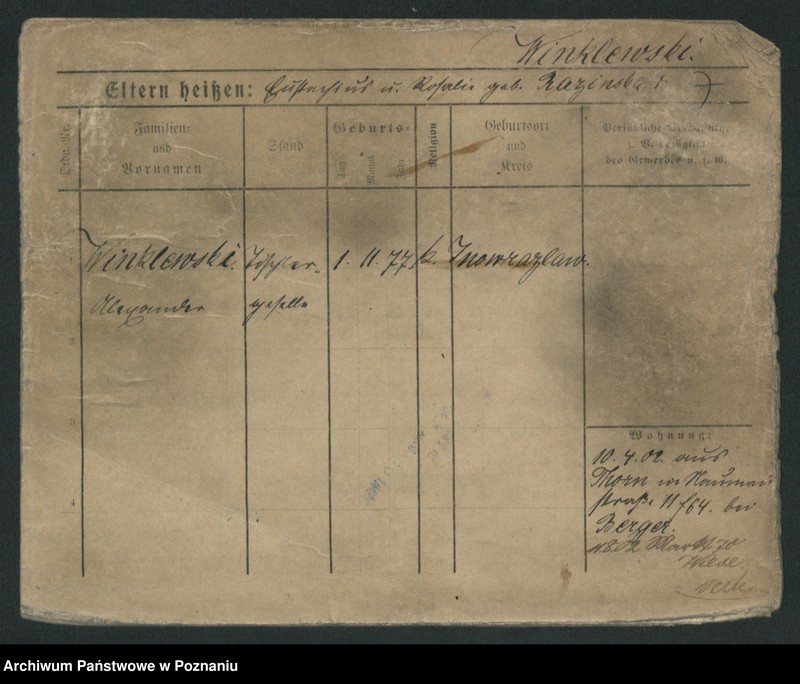 Winklewski.
Eltern heißen: Eustachius u. Rosalie geb. Razinska
Ordn. Nr.
Familien= und Vornamen
Stand
Geburts=
Tag
Monat
Jahr
Religion
Geburtsort und Kreis
Persönliche
des Gewerbes u. s. w.
Winklewski. Tischler= 1. 11. 77 k. Inowrazlaw.
Alexander geselle
2
3
4
Wohnung:
10. 4. 02. aus
Thorn in Naumann
straße 11 bei
Berger.
Markt 70
Archiwum Państwowe w Poznaniu